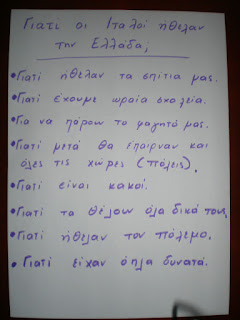 Γιατί οι Ιταλοί ήθελαν
την Ελλάδα;
• Γιατί ήθελαν τα σπίτια μας.
• Γιατί έχουμε ωραία σχολεία.
• Για να πάρουν το φαγητό μας.
• Γιατί μετά θα έπαιρναν και
όλες τις χώρες (πόλεις).
• Γιατί είναι κακοί.
• Γιατί τα θέλουν όλα δικά τους.
• Γιατί ήθελαν τον πόλεμο.
• Γιατί είχαν όπλα δυνατά.